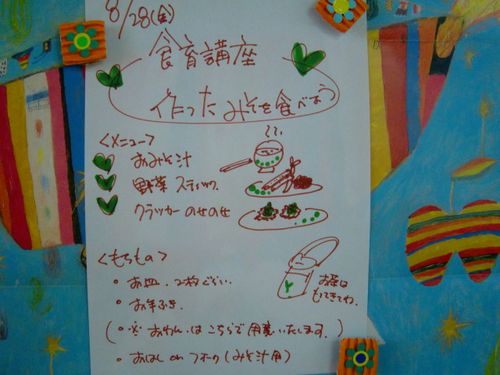 8/28(金)
食育講座
作ったみそを食べよう
<メニュー>
おみそ汁
野菜スティック
クラッカーのせのせ
<もちもの>
・お皿 2枚ぐらい
・お手ふき
(※おわんはこちらで用意いたします。)
・おはし or フォーク(みそ汁用)
お茶は
もってきてね。